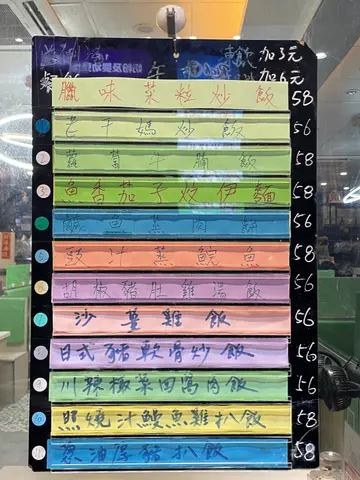 凍飲 加3元
餐飲 加6元
臘味菜粒炒飯 58
芒干媽炒飯 56
蘿蔔牛腩飯 58
魚香茄子炆伊麵 58
鹹魚蒸肉餅 56
豉汁蒸鯇魚 58
胡椒豬肚雞湯飯 56
沙薑雞飯 56
日式豬軟骨炒飯 56
川辣椒菜回鍋肉飯 56
照燒汁鰻魚雞扒飯 58
蔥油厚豬扒飯 58